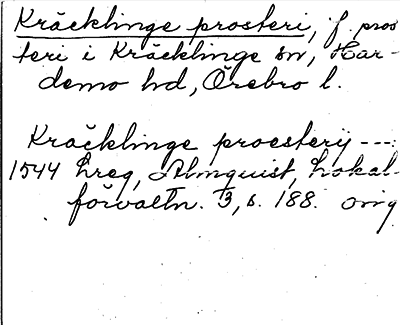 Kräcklinge prosteri, f. pros
teri i Kräcklinge sn, Har-
demo hd, Örebro l.
Kräcklinge proesterij ---:
1544 hreg, Almquist, Lokal-
förvaltn. 3, s. 188. orig